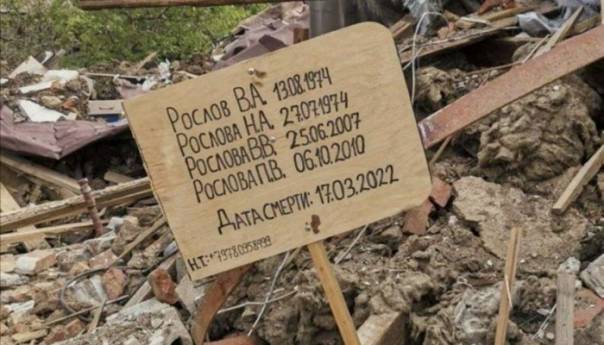 РОСЛОВ В.А. 13.08.1974
РОСЛОВА Н.А. 27.07.1974
РОСЛОВА В.В. 25.06.2007
РОСЛОВА П.В. 06.10.2010
ДАТА СМЕРТИ: 17.03.2022
Н.Т.: +79780958999